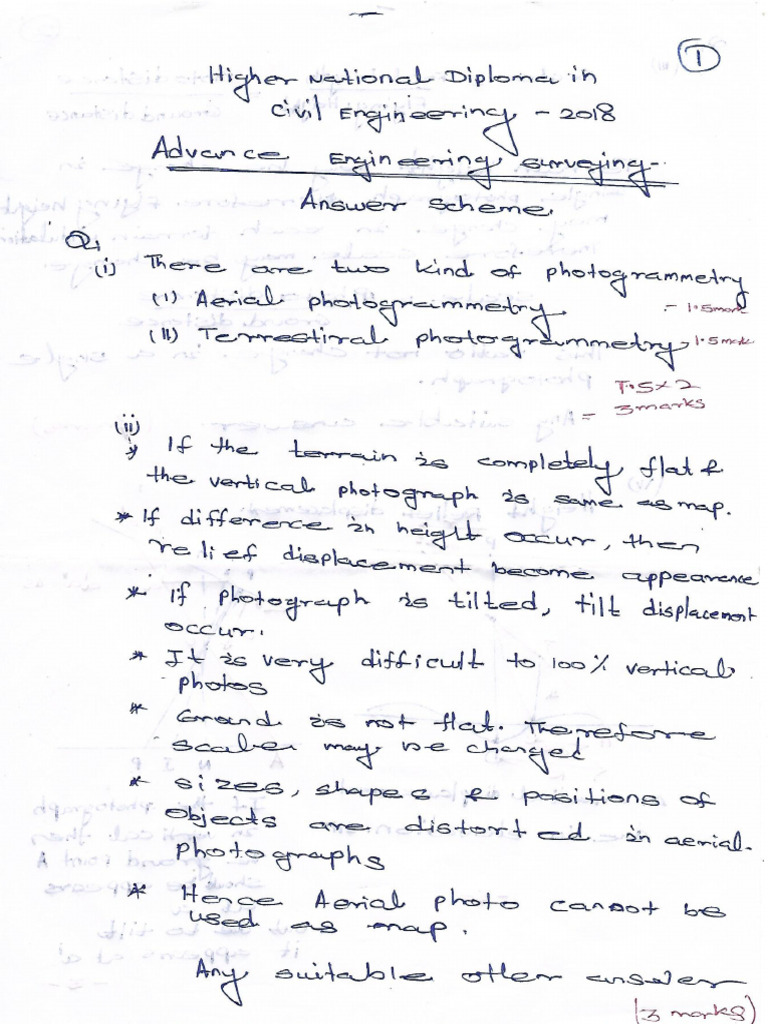 1
Higher National Diploma in
Civil Engineering - 2018
Advance Engineering surveying
Answer scheme
Q1
(i) There are two kind of photogrammetry
(I) Aerial photogrammetry - 1.5 mark
(II) Terrestiral photogrammetry 1.5 mark
1.5 x 2
= 3 marks
(ii)
* If the terrain is completely flat &
the vertical photograph is same as map.
* If difference in height occur, then
relief displacement become appearence
* if photograph is tilted, tilt displacement
occur.
* It is very difficult to 100% vertical
photos
* Ground is not flat. Therefore
scale may be changed
* sizes, shapes & positions of
objects are distorted in aerial
photographs
* Hence Aerial photo cannot be
used as map.
Any suitable other answer
(3 marks)